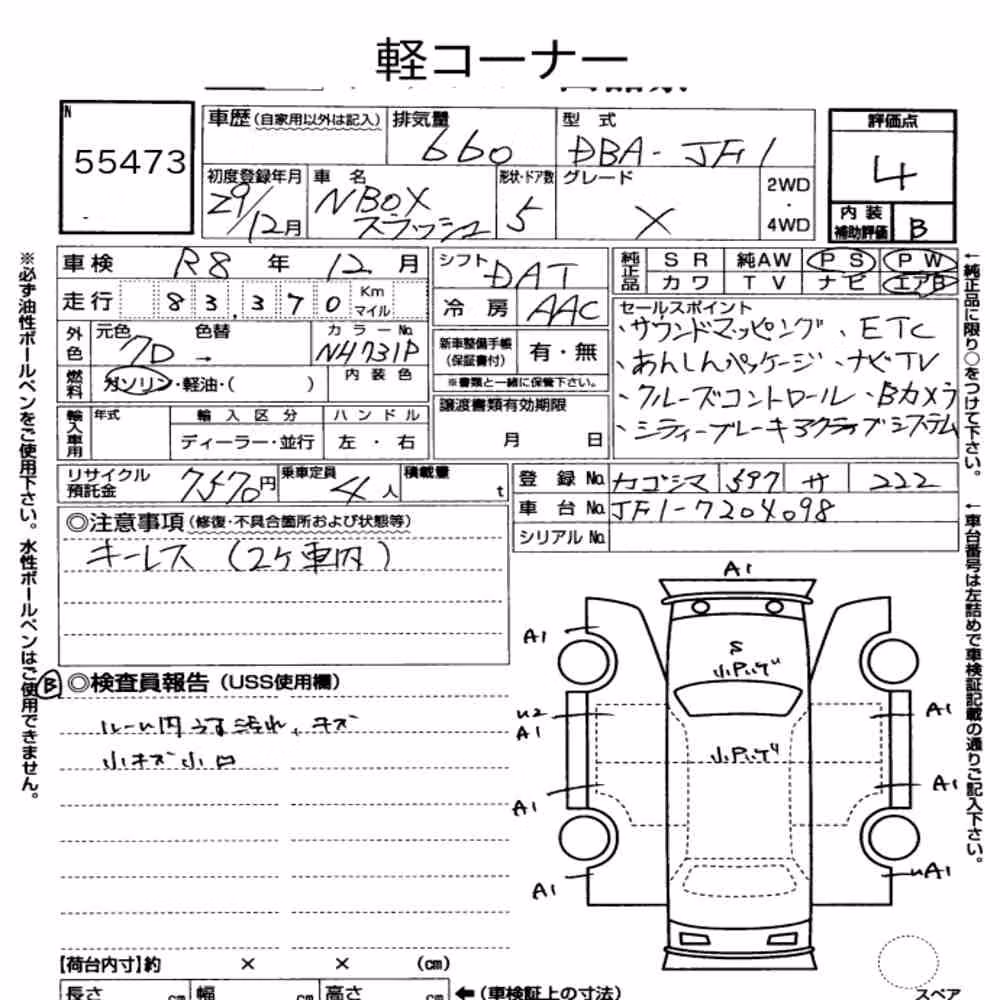 軽コーナー
N
55473
車歴(自家用以外は記入)
排気量
660
型式
DBA-JF1
評価点
4
初度登録年月
29/12月
車名
NBOX
スラッシュ
形状・ドア数
5
グレード
X
2WD
・
4WD
内装
補助評価
B
車検 R8年 12月
走行 83,370 Km
マイル
外色
元色
7D
色替
→
カラーNo.
N4731P
燃料
ガソリン・軽油・( )
内装色
輸入車用
年式
輸入区分
ディーラー・並行
ハンドル
左・右
シフト
DAT
冷房
AAC
新車整備手帳
(保証書付)
有・無
※書類と一緒に保管下さい。
譲渡書類有効期限
月 日
純正品
SR 純AW PS PW
カワ TV ナビ エアB
セールスポイント
、サウンドマッピング 、ETC
、あんしんパッケージ 、ナビTV
、クルーズコントロール 、Bカメラ
、シティーブレーキアクティブシステム
リサイクル
預託金
7570円
乗車定員
4人
積載量
t
登録No. カゴシマ 597 サ 222
車台No. JF1-7204098
シリアルNo.
◎注意事項(修復・不具合箇所および状態等)
キーレス(2ヶ車内)
B
◎検査員報告(USS使用欄)
ルーム内 汚れ、キズ
小キズ小凹
A1
A1
S
U2
A1
A1
A1
A1
A1
A1
【荷台内寸】約 × × (cm)
長さ cm 幅 cm 高さ cm
←(車検証上の寸法)
スペア
※必ず油性ボールペンをご使用下さい。水性ボールペンはご使用できません。
←純正品に限り○をつけて下さい。
←車台番号は左詰めで車検証記載の通りご記入下さい。